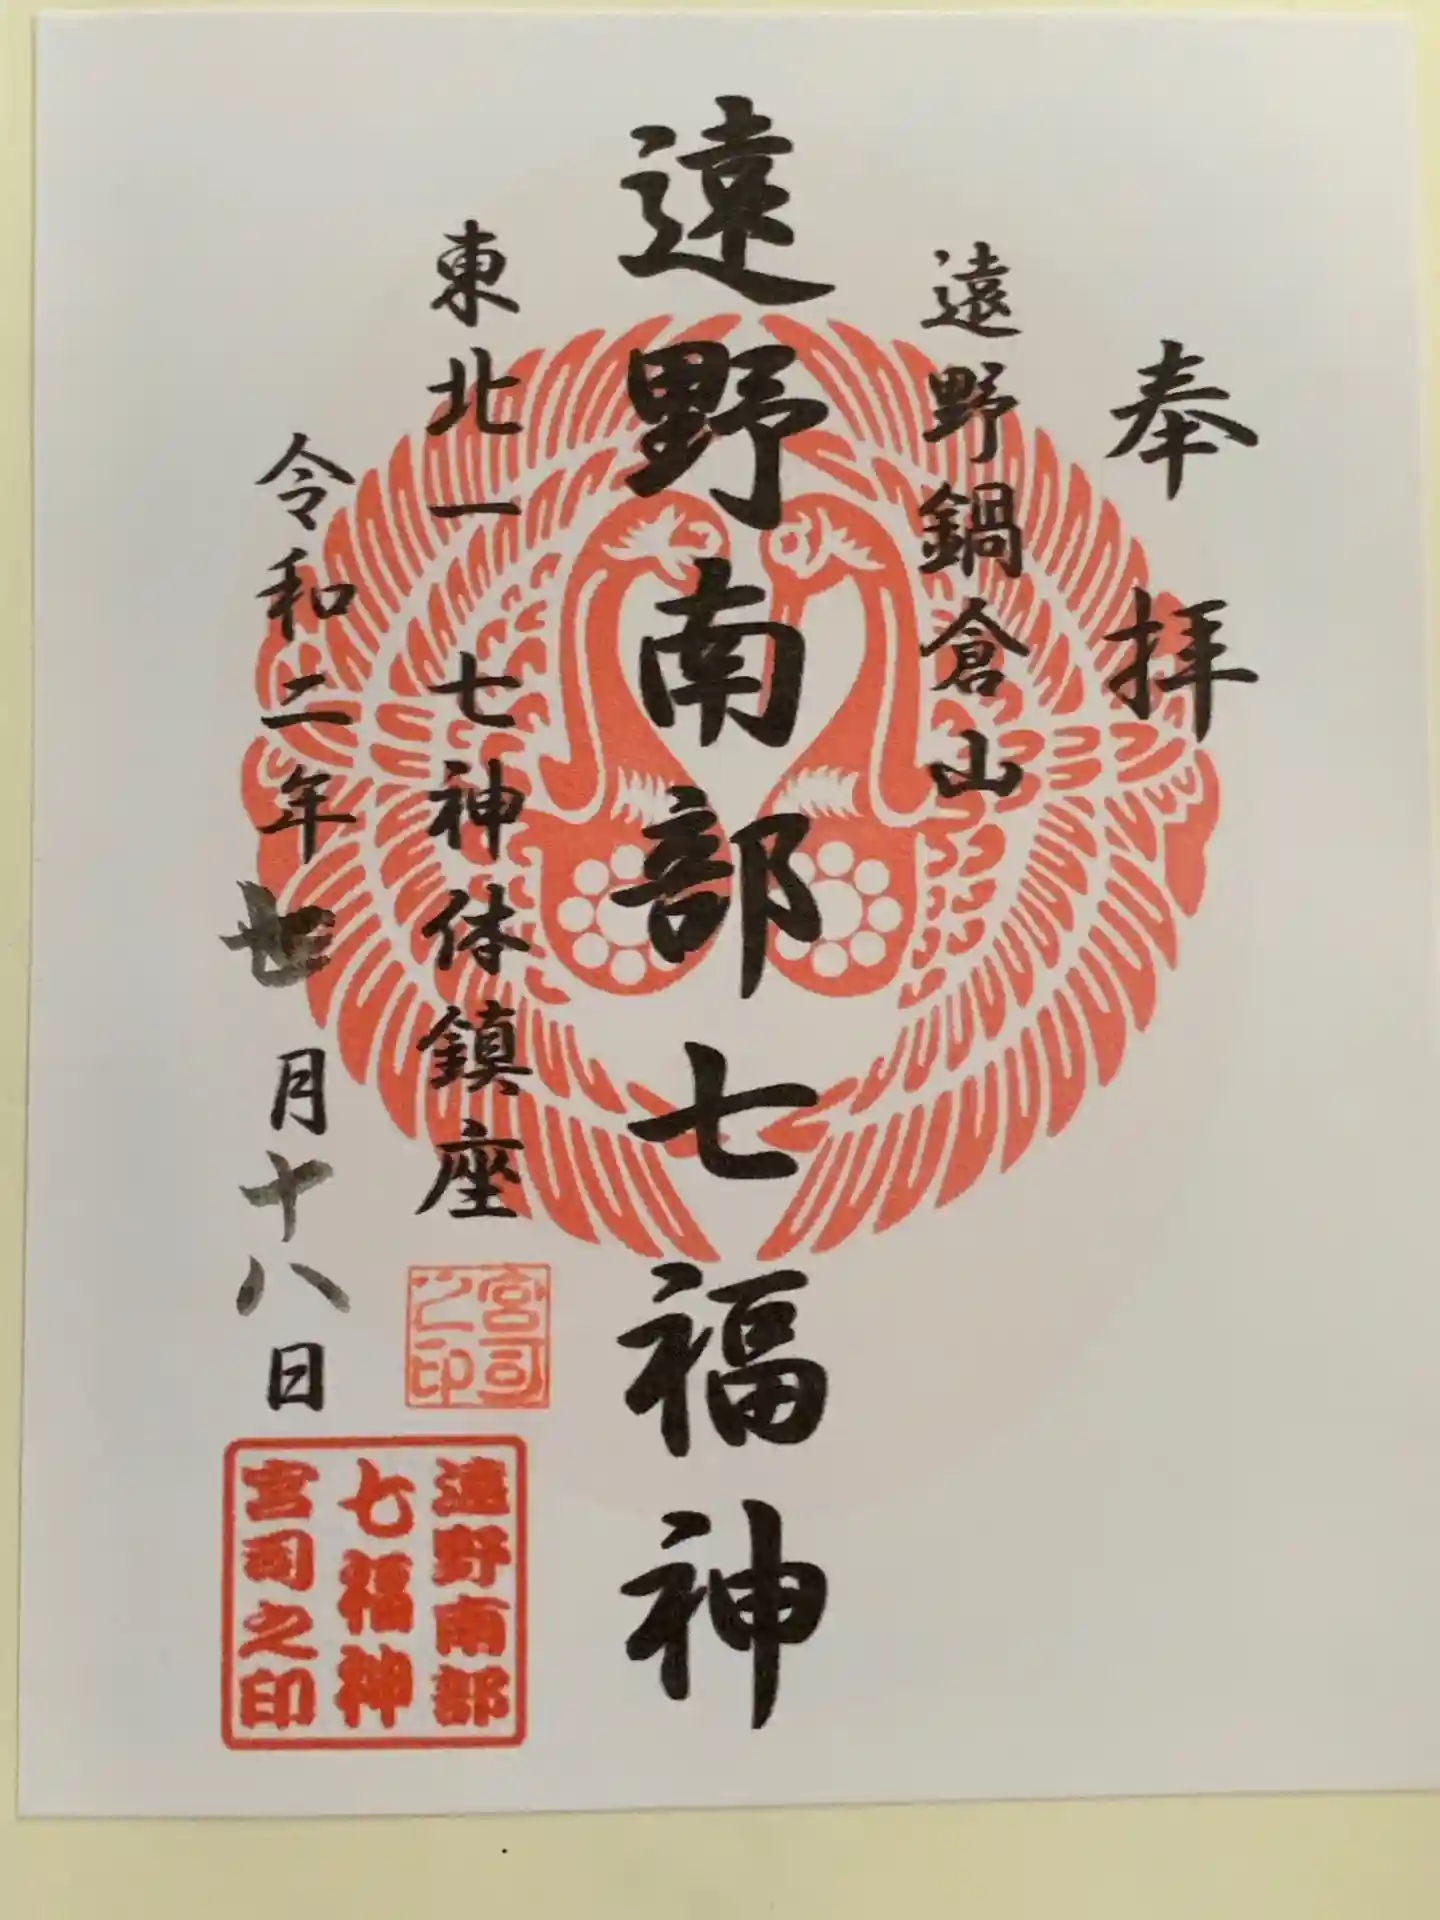 奉拝
遠野鍋倉山
遠野南部七福神
東北一 七神体鎮座
令和二年 七月十八日
宮司
之印
遠野南部
七福神
宮司之印